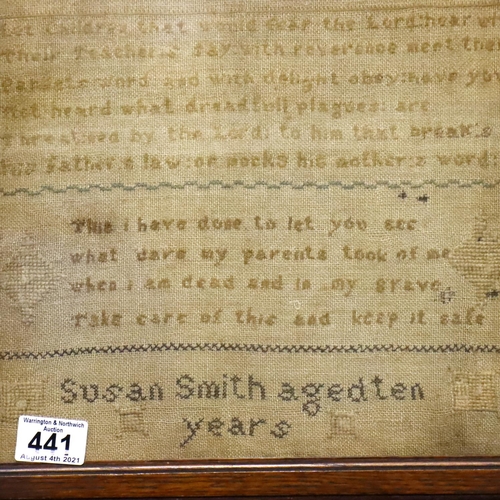 Let Children that would fear the Lord:hear wh
Their Teachers say with reverence meet thei
Parents word and with delight obey:have you
Not heard what dreadfull plagues: are
Threatned by the Lord: to him that break:s
his father:s law:or mocks his mother:s word
This i have done to let you see
what care my parents took of me
when i am dead and in my grave
Take care of this and keep it safe
Susan Smith aged ten
years
Warrington & Northwich
Auction
441
August 4th 2021